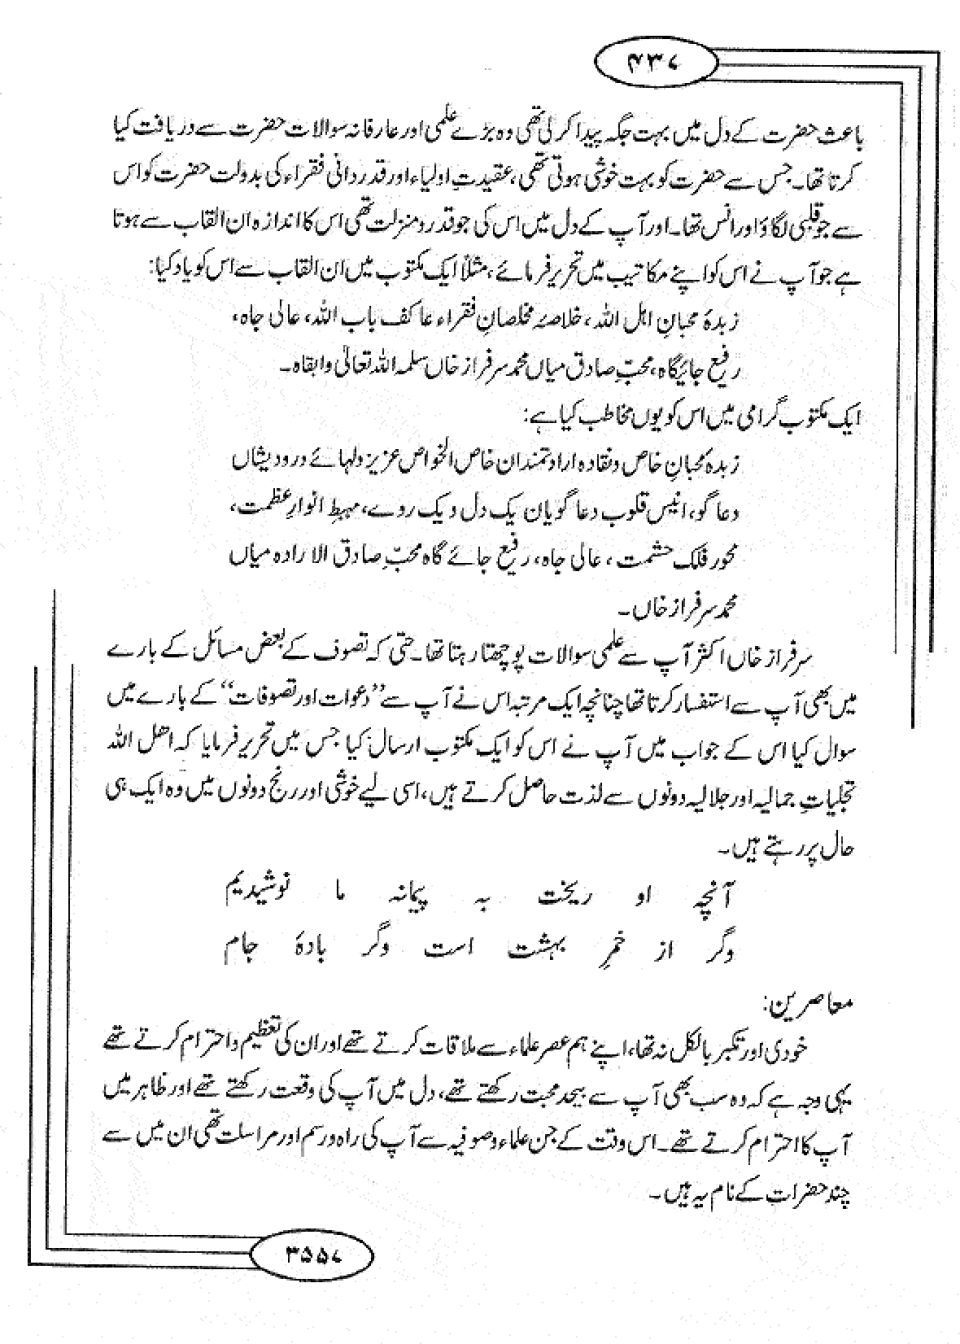 ۴۳۷
باعث حضرت کے دل میں بہت جگہ پیدا کر لی تھی وہ بڑے علمی اور عارفانہ سوالات حضرت سے دریافت کیا
کرتا تھا۔ جس سے حضرت کو بہت خوشی ہوتی تھی، عقیدتِ اولیاء اور قدردانی فقراء کی بدولت حضرت کو اس
سے جو قلبی لگاؤ اور انس تھا۔ اور آپ کے دل میں اس کی جو قدر و منزلت تھی اس کا اندازہ ان القاب سے ہوتا
ہے جو آپ نے اس کو اپنے مکاتیب میں تحریر فرمائے، مثلاً ایک مکتوب میں ان القاب سے اس کو یاد کیا:
زبدۂ محبانِ اہل اللہ، خلاصۂ مخلصانِ فقراء عاکف باب اللہ، عالی جاہ،
رفیع جائیگاہ، محبّ صادق میاں محمد سرفراز خاں سلمہ اللہ تعالیٰ وابقاہ۔
ایک مکتوب گرامی میں اس کو یوں مخاطب کیا ہے:
زبدۂ محبانِ خاص ونقادہ ارادتمندان خاص الخواص عزیز دلہائے درودیشاں
دعا گو، انیس قلوب دعا گویان یک دل ویک روے، مہبطِ انوارِ عظمت،
محور فلک حشمت، عالی جاہ، رفیع جائے گاہ محبّ صادق الارادہ میاں
محمد سرفراز خاں۔
سرفراز خاں اکثر آپ سے علمی سوالات پوچھتا رہتا تھا۔ حتی کہ تصوف کے بعض مسائل کے بارے
میں بھی آپ سے استفسار کرتا تھا چنانچہ ایک مرتبہ اس نے آپ سے ”دعوات اور تصوفات“ کے بارے میں
سوال کیا اس کے جواب میں آپ نے اس کو ایک مکتوب ارسال کیا جس میں تحریر فرمایا کہ اھل اللہ
تجلیاتِ جمالیہ اور جلالیہ دونوں سے لذت حاصل کرتے ہیں، اسی لیے خوشی اور رنج دونوں میں وہ ایک ہی
حال پر رہتے ہیں۔
آنچہ او ریخت بہ پیمانہ ما نوشیدیم
وگر از خمرِ بہشت است وگر بادۂ جام
معاصرین:
خودی اور تکبر بالکل نہ تھا، اپنے ہم عصر علماء سے ملاقات کرتے تھے اور ان کی تعظیم و احترام کرتے تھے
یہی وجہ ہے کہ وہ سب بھی آپ سے بیحد محبت رکھتے تھے، دل میں آپ کی وقعت رکھتے تھے اور ظاہر میں
آپ کا احترام کرتے تھے۔ اس وقت کے جن علماء وصوفیہ سے آپ کی راہ ورسم اور مراسلت تھی ان میں سے
چند حضرات کے نام یہ ہیں۔
۳۵۵۷